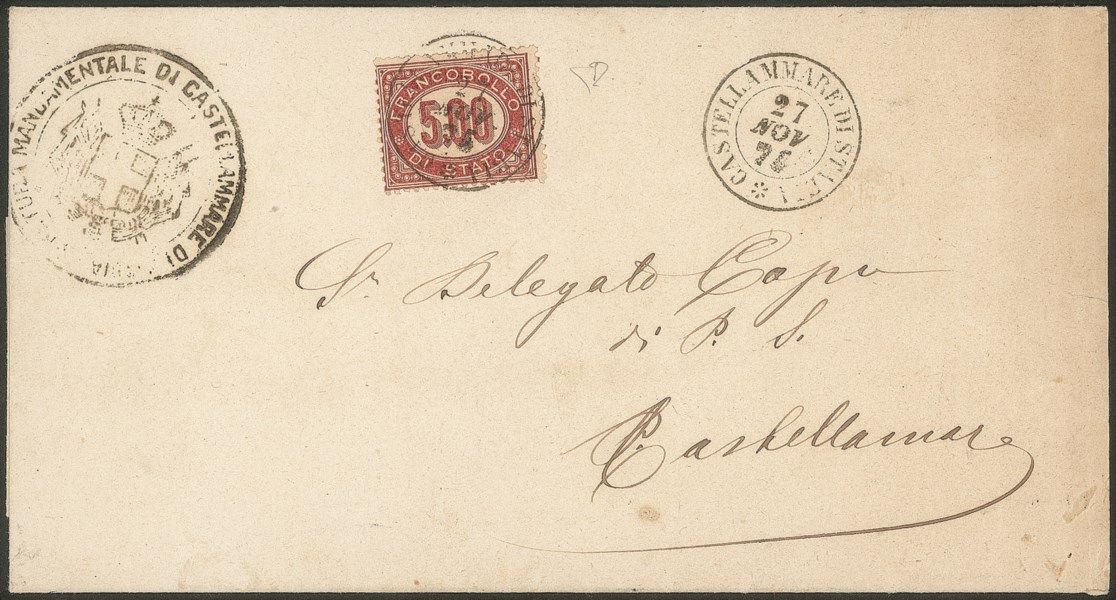 MANDAMENTALE DI CASTELLAMMARE DI
FRANCOBOLLO
5.00
DI STATO
CASTELLAMMARE DI STABIA
27
NOV
76
Sr Delegato Capo
di P. S.
Castellamare